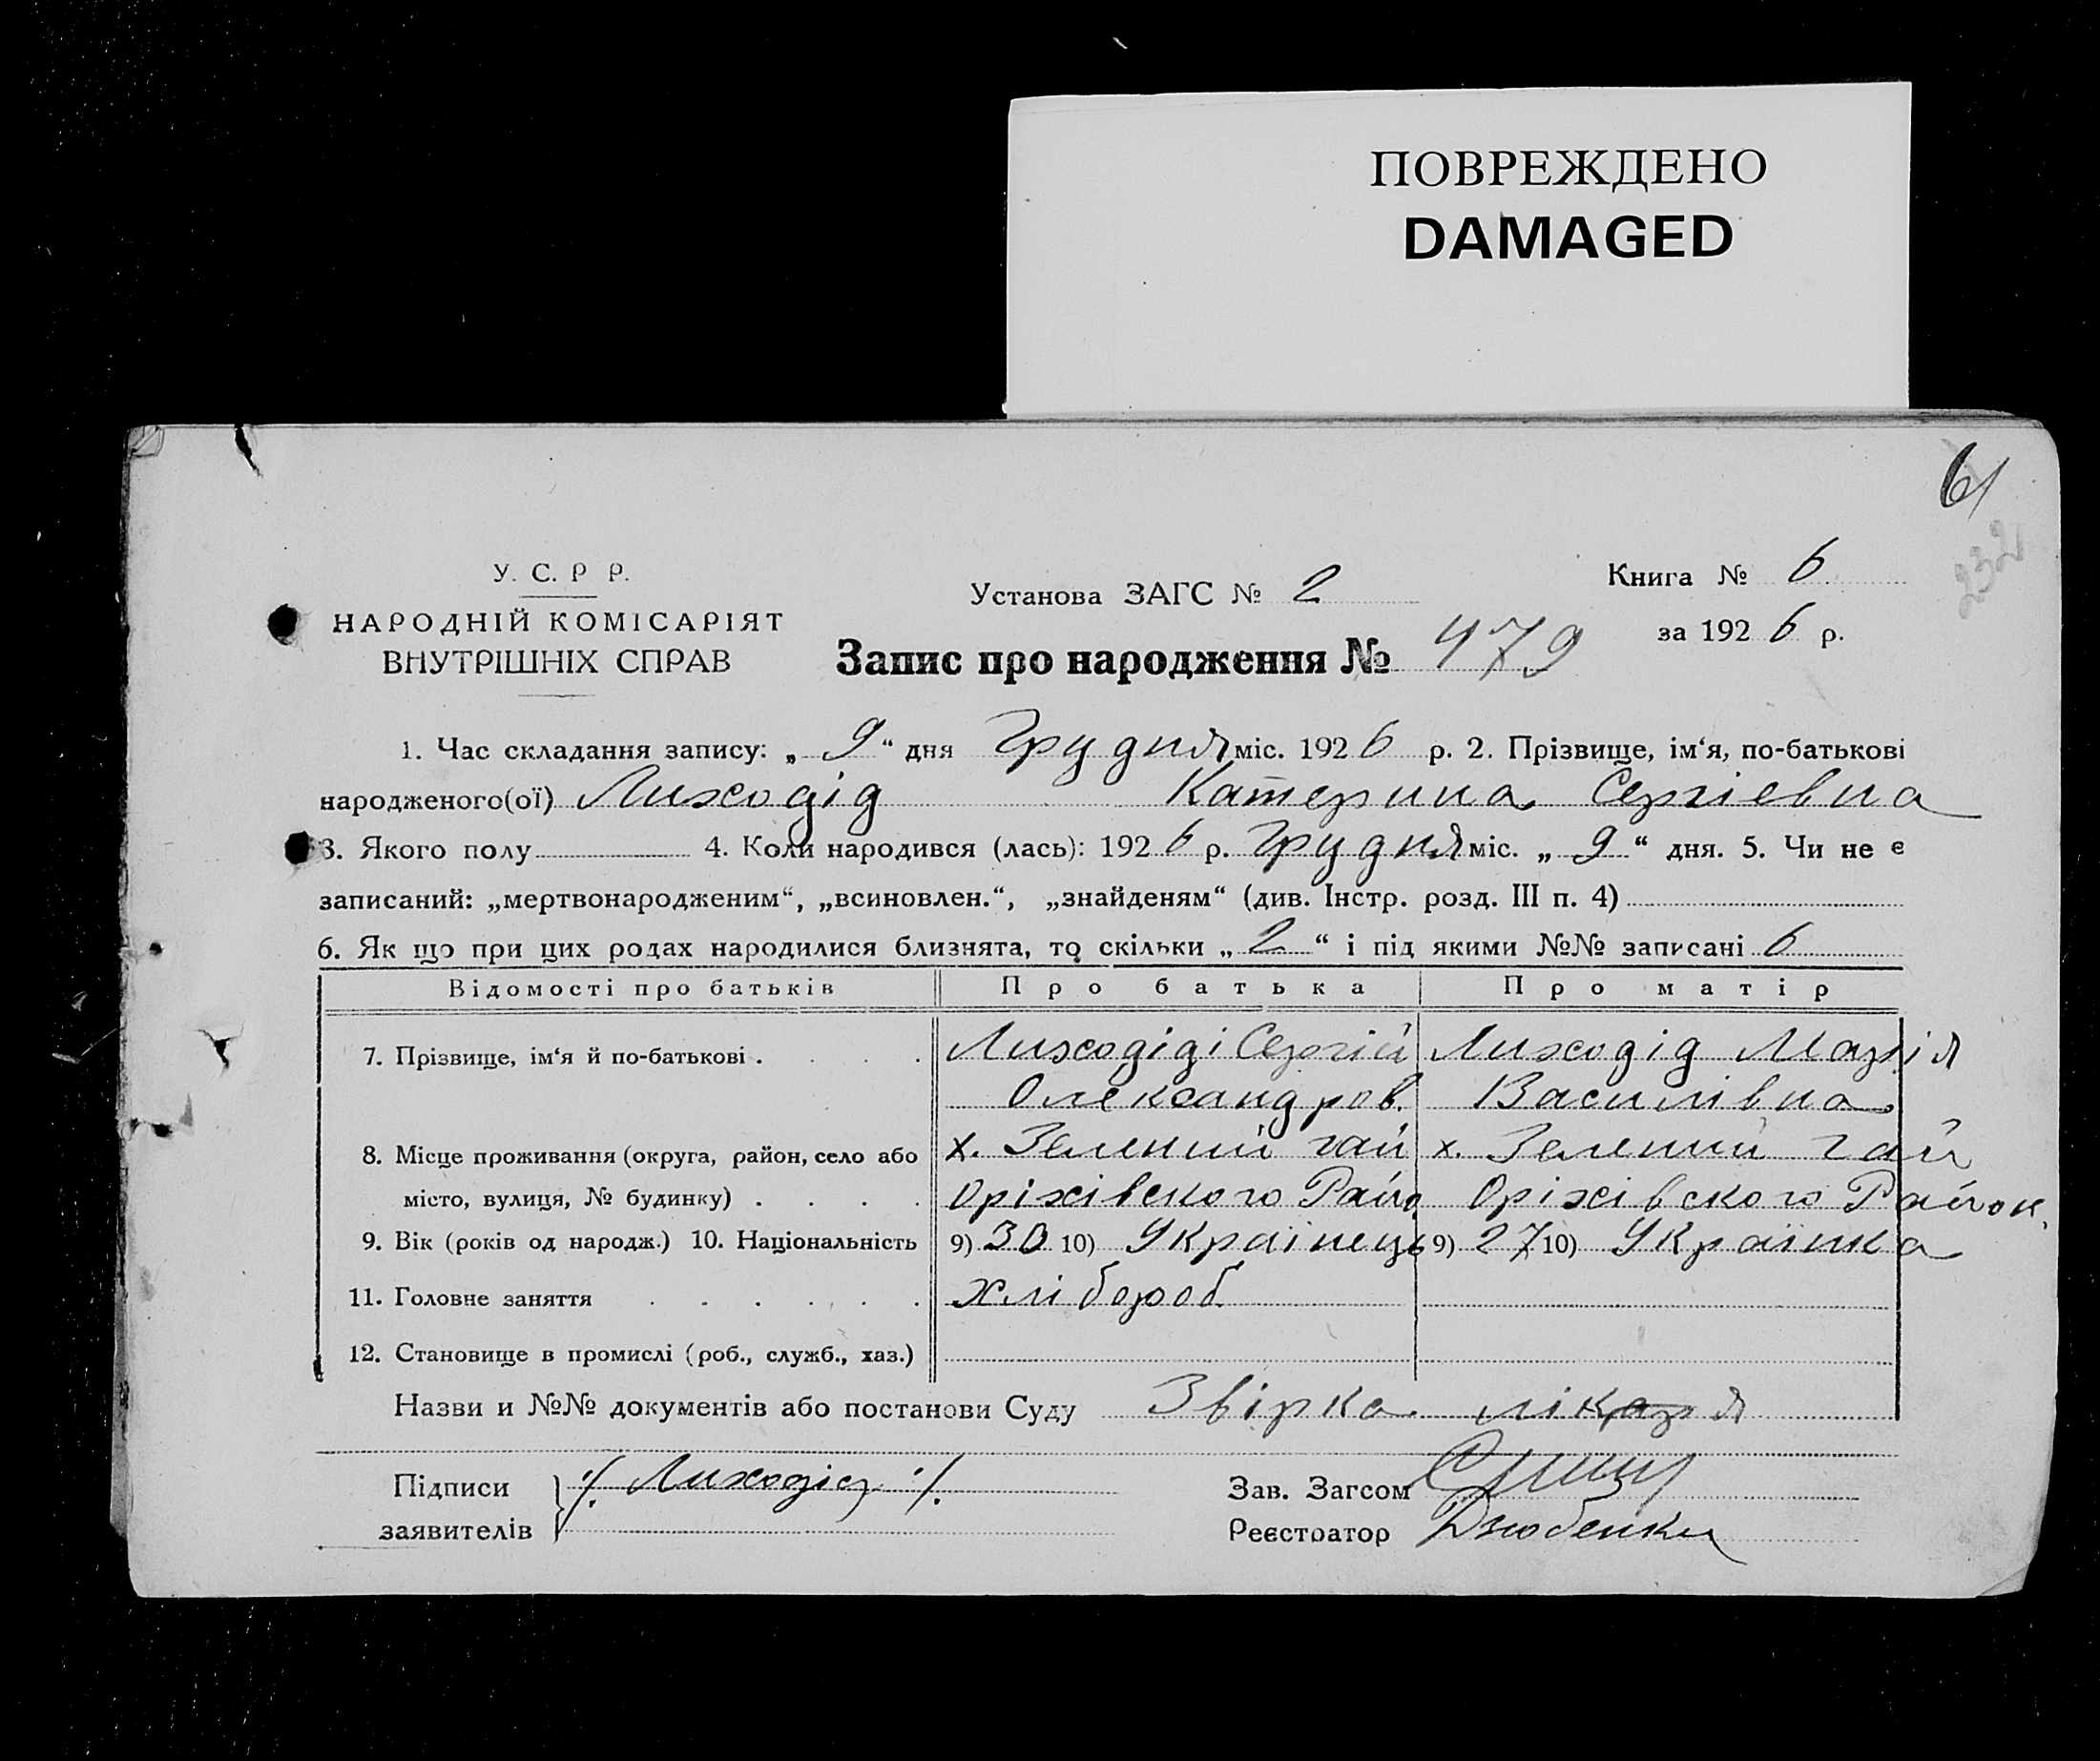 ПОВРЕЖДЕНО
DAMAGED
61
232
У. С. Р Р.
НАРОДНІЙ КОМІСАРІЯТ
ВНУТРІШНІХ СПРАВ
Установа ЗАГС № 2
Книга № 6
за 1926 р.
Запис про народження № 479
1. Час складання запису: „ 9 “ дня Грудня міс. 1926 р. 2. Прізвище, ім‘я, по-батькові
народженого(ої) Лиходід Катерина Сергієвна
3. Якого полу 4. Коли народився (лась): 1926 р. Грудня міс. „ 9 “ дня. 5. Чи не є
записаний: „мертвонародженим“, „всиновлен.“, „знайденям“ (див. Інстр. розд. III п. 4)
6. Як що при цих родах народилися близнята, то скільки „ 2 “ і під якими №№ записані 6
Відомості про батьків Про батька Про матір
7. Прізвище, ім‘я й по-батькові . . . . Лиходіді Сергій Лиходід Марія
Олександров. Василівна
8. Місце проживання (округа, район, село або х. Зелений гай х. Зелений гай
місто, вулиця, № будинку) . . . . Оріхівского Райо Оріхівского Район.
9. Вік (років од народж.) 10. Національність 9) 30 10) Українець 9) 27 10) Українка
11. Головне заняття . . . . . . хлібороб
12. Становище в промислі (роб., служб., хаз.)
Назви и №№ документів або постанови Суду Звірка лікаря
Підписи ./. Лиходід ./. Зав. Загсом
заявителів Реєстратор Дзюбенки